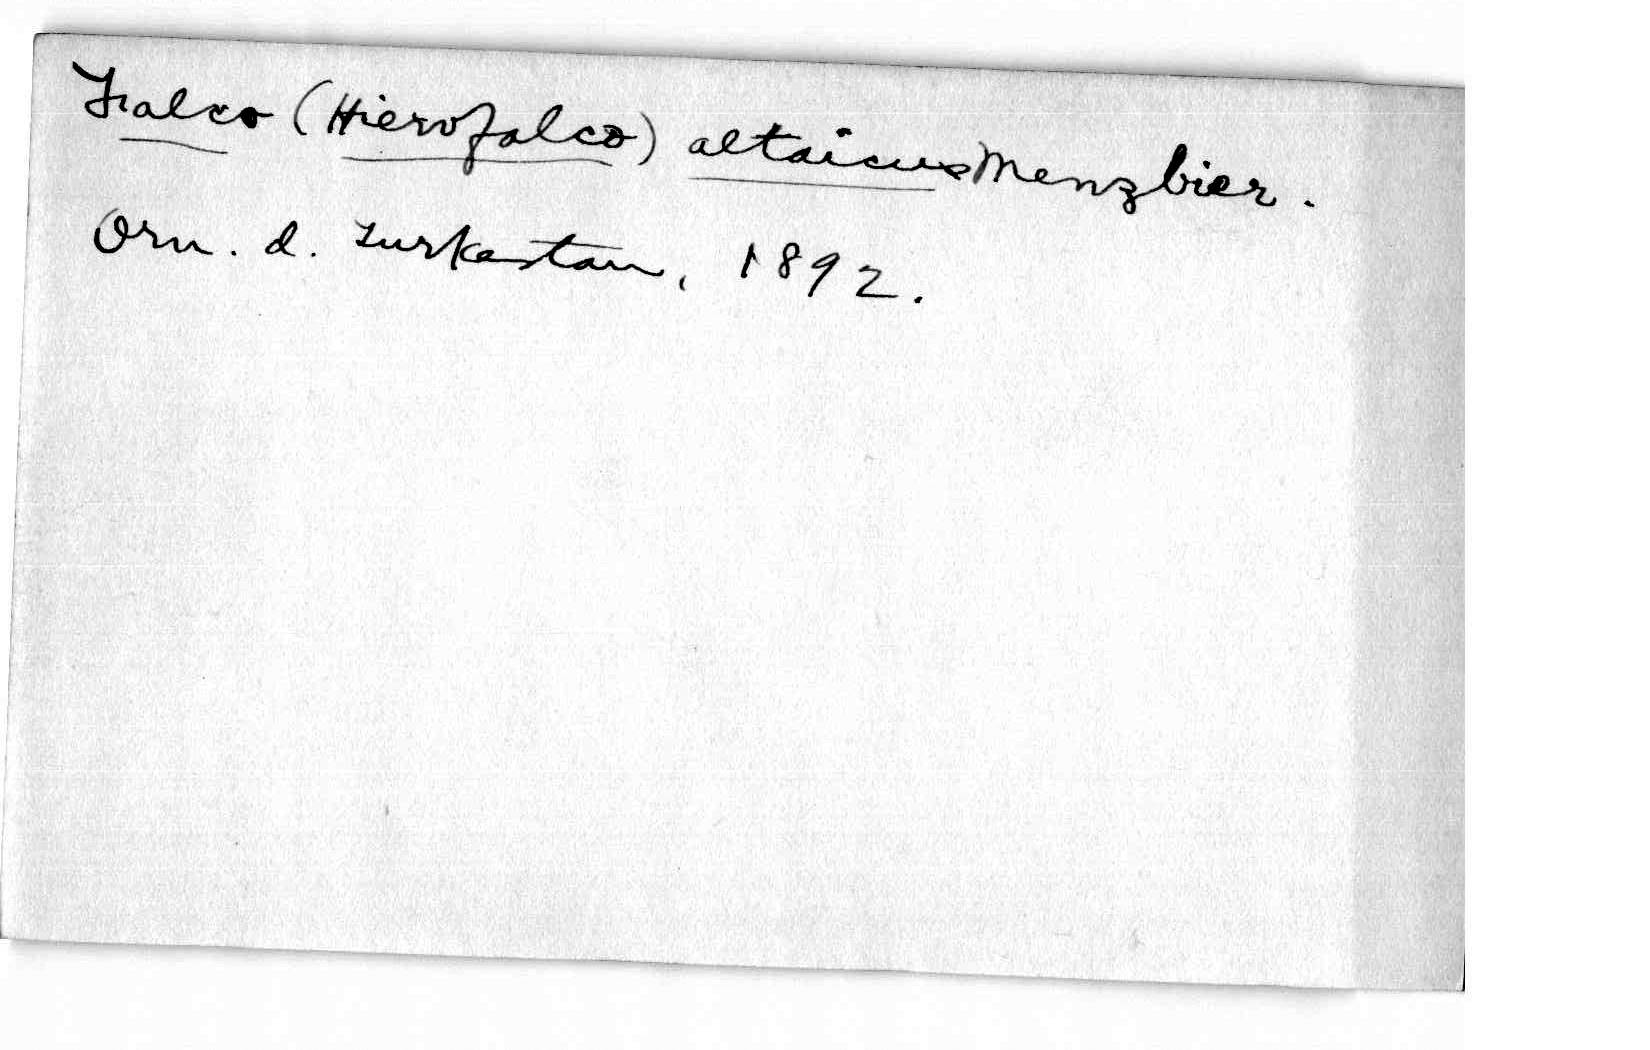 Falco (Hierofalco) altaicus Menzbier.
Orn. d. Turkestan, 1892.